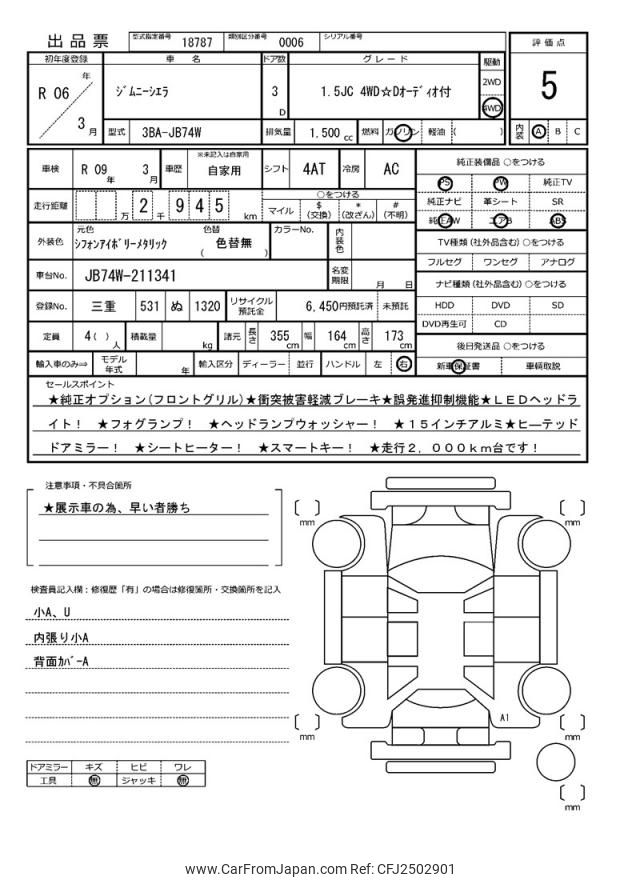 出品票 型式指定番号 18787 類別区分番号 0006 シリアル番号
初年度登録 車名 ドア数 グレード 駆動 評価点
R 06 年 3 月 ジムニーシエラ 3 D 1.5JC 4WD☆Dオーディオ付 2WD 4WD 5
型式 3BA-JB74W 排気量 1,500 cc 燃料 ガソリン 軽油 ( ) 内装 A B C
車検 R 09 年 3 月 車歴 ※未記入は自家用 自家用 シフト 4AT 冷房 AC 純正装備品 ○をつける
PS PW 純正TV
走行距離 2 万 9 千 4 5 km ○をつける マイル $ (交換) * (改ざん) # (不明) 純正ナビ 革シート SR
純正AW エアB ABS
外装色 元色 シフォンアイボリーメタリック 色替 ( 色替無 ) カラーNo. 内装色 TV種類 (社外品含む) ○をつける
フルセグ ワンセグ アナログ
車台No. JB74W-211341 名変期限 月 日 ナビ種類 (社外品含む) ○をつける
登録No. 三重 531 ぬ 1320 リサイクル預託金 6,450円預託済 未預託 HDD DVD SD
DVD再生可 CD
定員 4( ) 人 積載量 kg 諸元 長さ 355 cm 幅 164 cm 高さ 173 cm 後日発送品 ○をつける
輸入車のみ⇒ モデル年式 年 輸入区分 ディーラー 並行 ハンドル 左 右 新車保証書 車輌取説
セールスポイント
★純正オプション(フロントグリル)★衝突被害軽減ブレーキ★誤発進抑制機能★LEDヘッドラ
イト! ★フォグランプ! ★ヘッドランプウォッシャー! ★15インチアルミ★ヒーテッド
ドアミラー! ★シートヒーター! ★スマートキー! ★走行2,000km台です!
注意事項・不具合箇所
★展示車の為、早い者勝ち
mm mm
検査員記入欄：修復歴「有」の場合は修復箇所・交換箇所を記入
小A、U
内張り小A
背面カバーA
A1
mm mm
ドアミラー キズ ヒビ ワレ
工具 無 ジャッキ 無
mm
www.CarFromJapan.com Ref: CFJ2502901